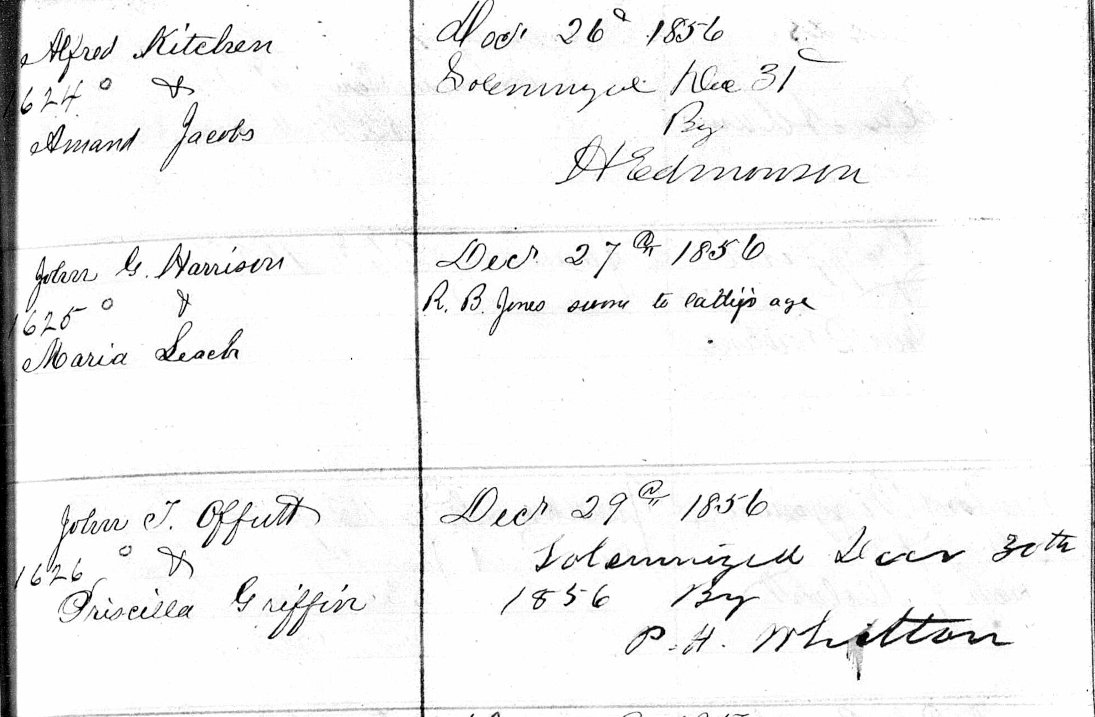 Alfred Kitchen
1624 &
Amand Jacobs
Dec 26 1856
Solemnized Dec 31
By
H Edmonson
John G. Harrison
1625 &
Maria Leach
Decr 27th 1856
R. B. Jones to age
John T. Offutt
1626 &
Priscilla Griffin
Decr 29th 1856
Solemnized Decr 30th
1856 By
P. H. Whitton